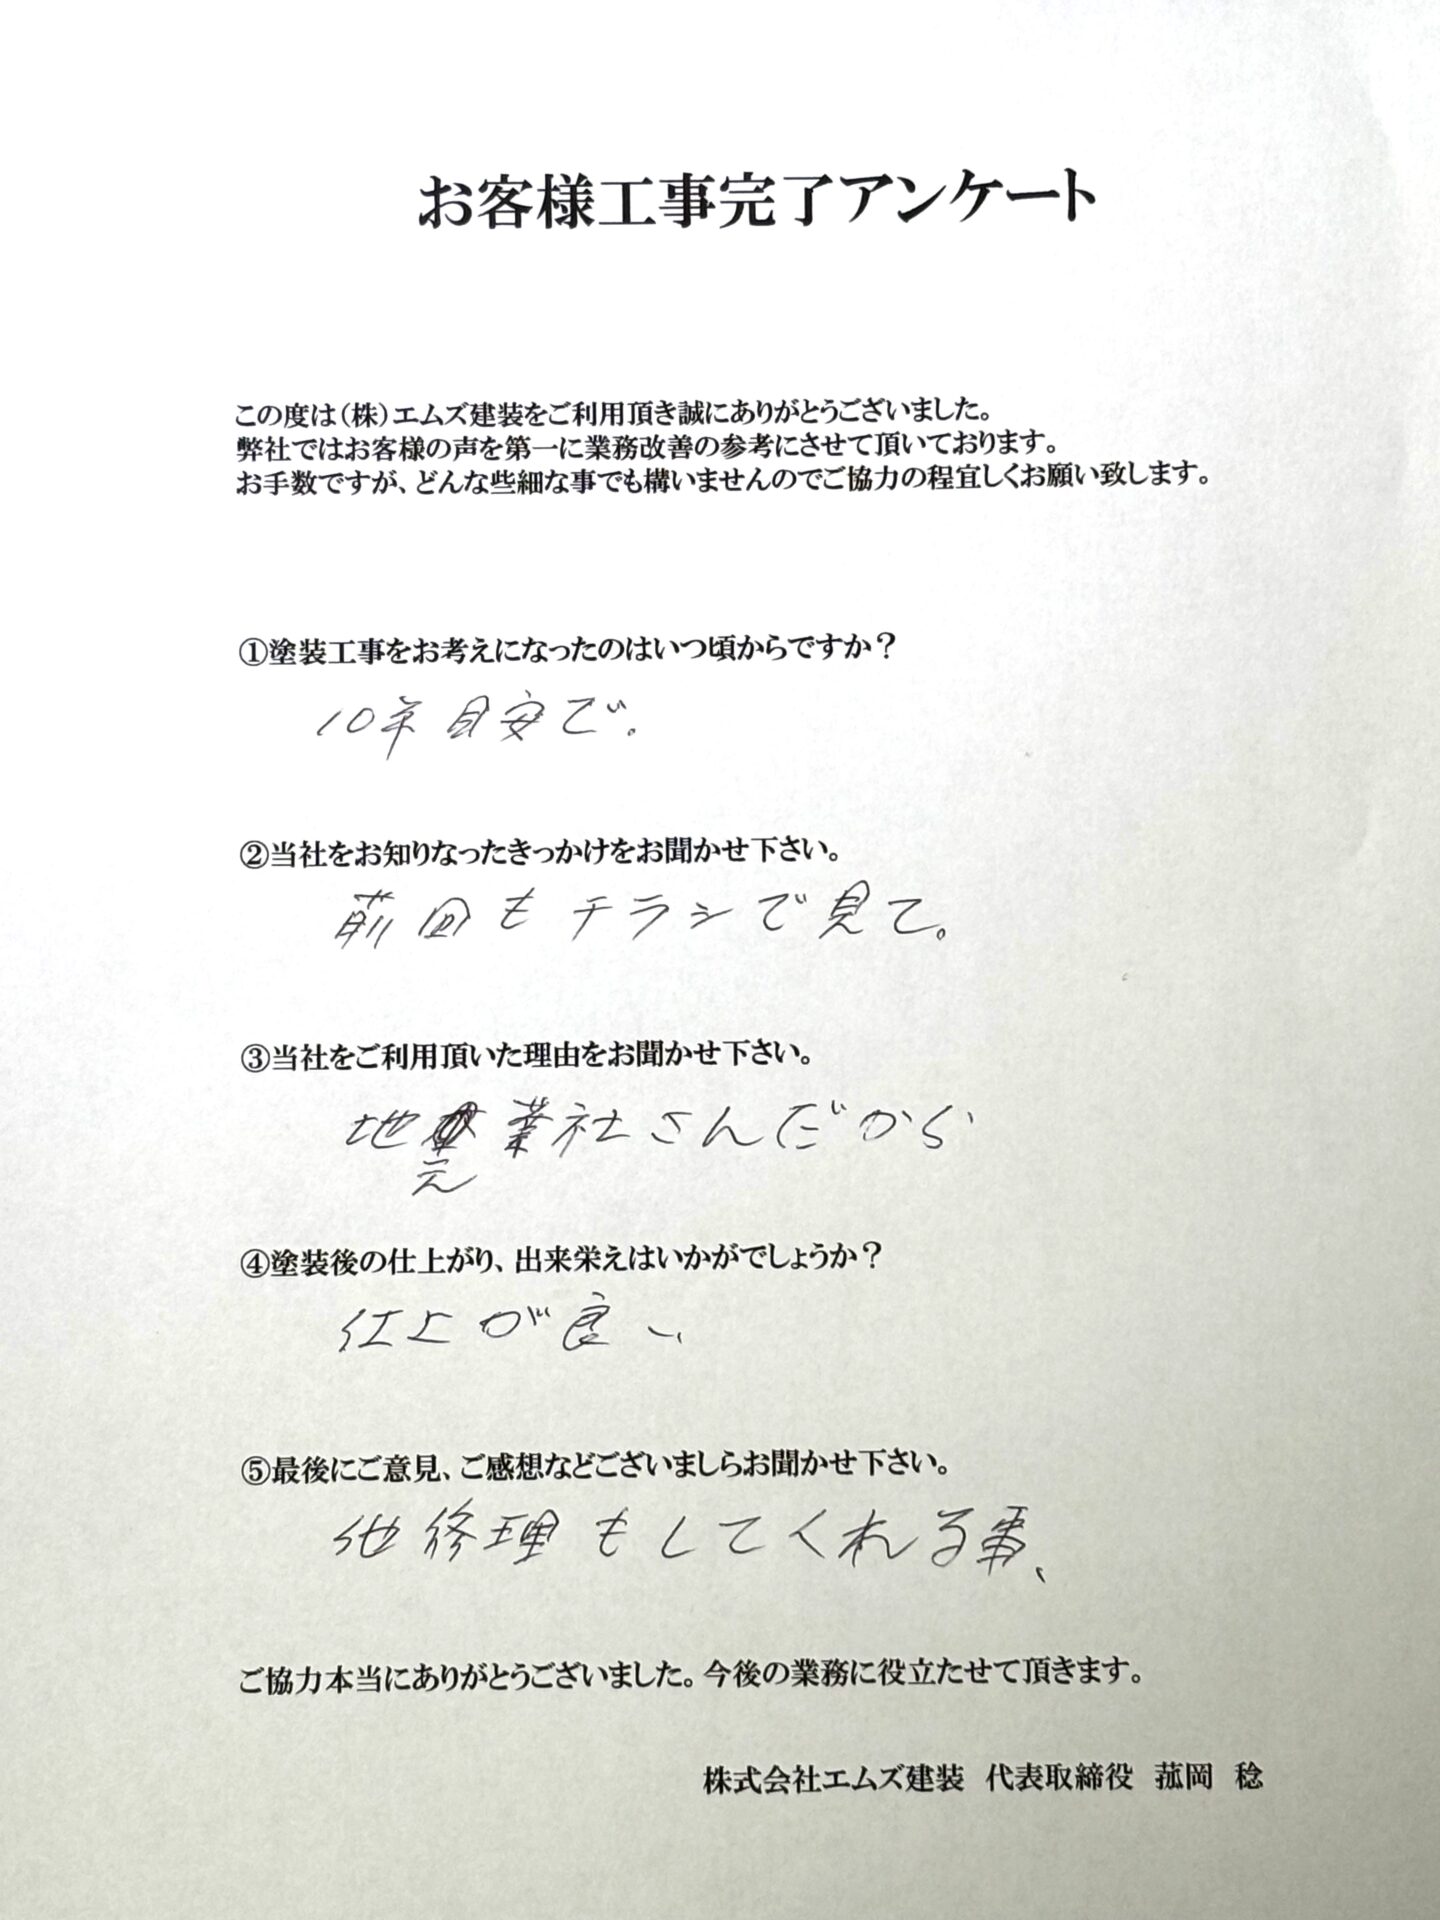 お客様工事完了アンケート
この度は（株）エムズ建装をご利用頂き誠にありがとうございました。
弊社ではお客様の声を第一に業務改善の参考にさせて頂いております。
お手数ですが、どんな些細な事でも構いませんのでご協力の程宜しくお願い致します。
①塗装工事をお考えになったのはいつ頃からですか？
10年目安で。
②当社をお知りなったきっかけをお聞かせ下さい。
前回もチラシで見て。
③当社をご利用頂いた理由をお聞かせ下さい。
地元業社さんだから
④塗装後の仕上がり、出来栄えはいかがでしょうか？
仕上が良い
⑤最後にご意見、ご感想などございましらお聞かせ下さい。
他修理もしてくれる事、
ご協力本当にありがとうございました。今後の業務に役立たせて頂きます。
株式会社エムズ建装 代表取締役 菰岡 稔